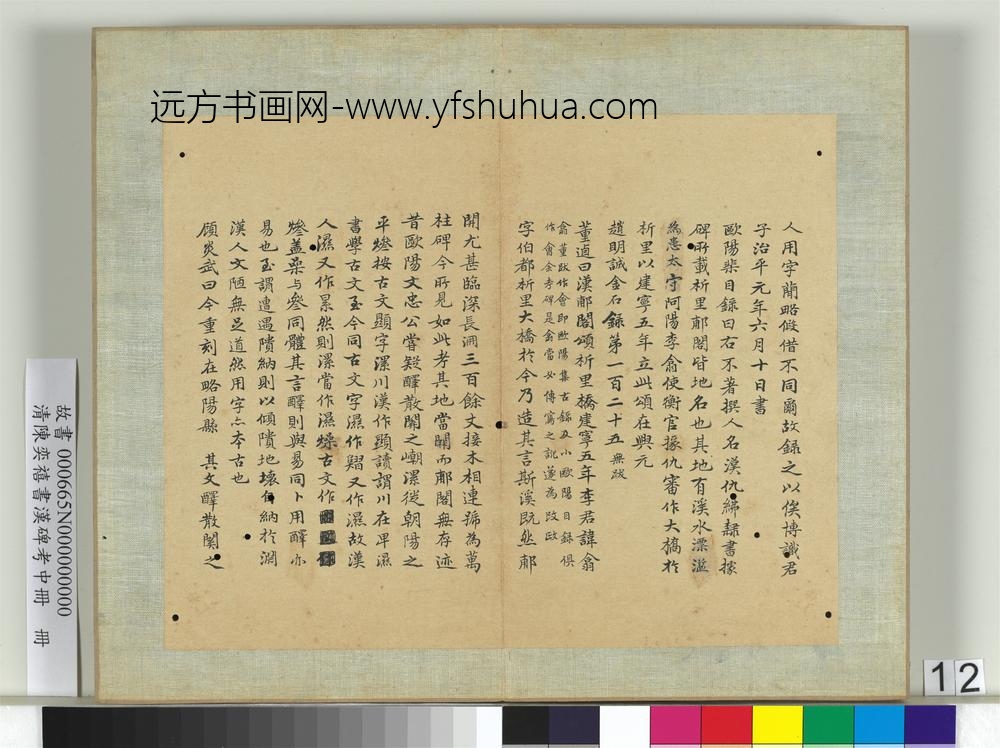 远方书画网-www.yfshuhua.com
人用字簡略假借不同爾故錄之以俟博識君
子治平元年六月十日書
歐陽棐目錄曰右不著撰人名漢仇紼隸書據
碑所載析里郙閣皆地名也其地有溪水漂溢
為患太守阿陽李翕使衡官掾仇審作大橋於
析里以建寧五年立此頌在興元
趙明誠金石錄第一百二十五無跋
董逌曰漢郙閣頌析里橋建寧五年李君諱翕
翕董跋作會即歐陽集古錄及小歐陽目錄俱
作會金考碑是翕當必傳寫之訛遂為改政
字伯都析里大橋於今乃造其言斯溪既然郙
閣尤甚臨深長淵三百餘丈接木相連號為萬
柱碑今所見如此考其地當關而郙閣無存迹
昔歐陽文忠公嘗疑醳散關之嶃漯從朝陽之
平燓按古文顯字漯川漢作顯讀謂川在平濕
書學古文至今同古文字濕作㬎又作濕故漢
人濕又作累然則漯當作濕燥古文作
燓蓋喿与參同體其言醳則與易同卜用醳亦
易也至謂遭遇隤納則以傾隤地壞自納於淵
漢人文陋無足道然用字亦本古也
顧炎武曰今重刻在略陽縣 其文醳散關之
故書000665N000000000
清陳奕禧書漢碑考中冊 冊
12